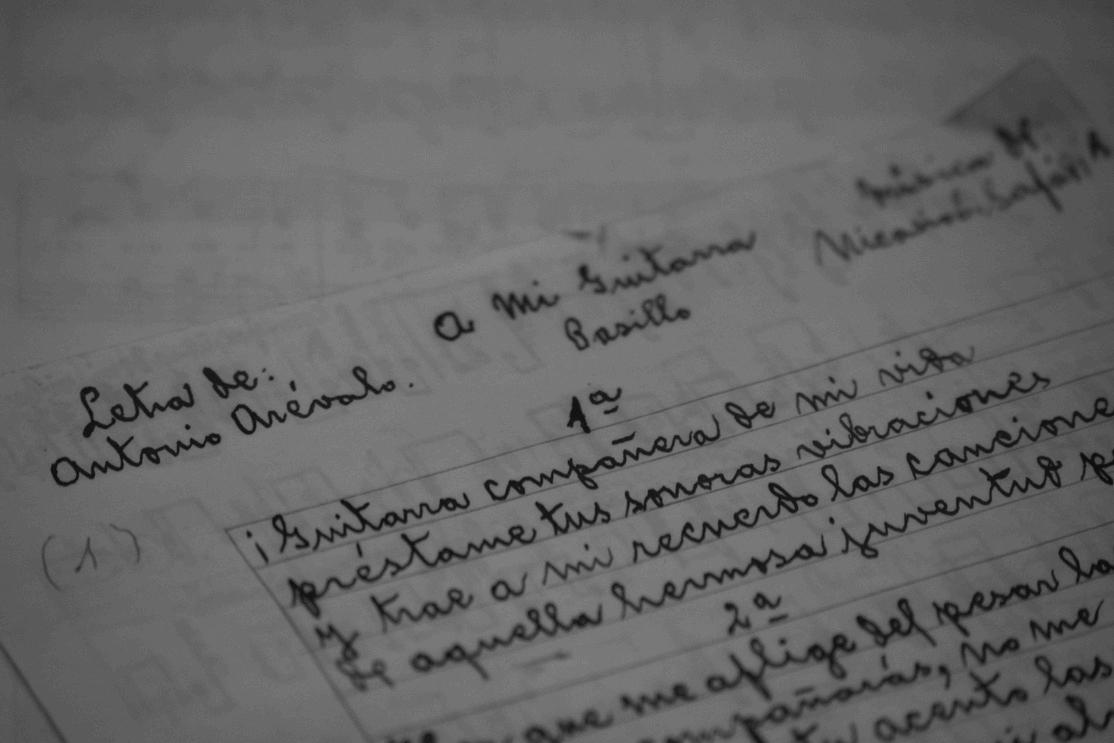 Música de:
Nicasio Safadi A
a mi Guitarra
Pasillo
Letra de:
Antonio Arévalo.
1ª
(1)
¡Guitarra compañera de mi vida
préstame tus sonoras vibraciones
y trae a mi recuerdo las cancione
de aquella hermosa juventud p
2ª
que me aflige del pesar la
compañarás, no me
tu acento las